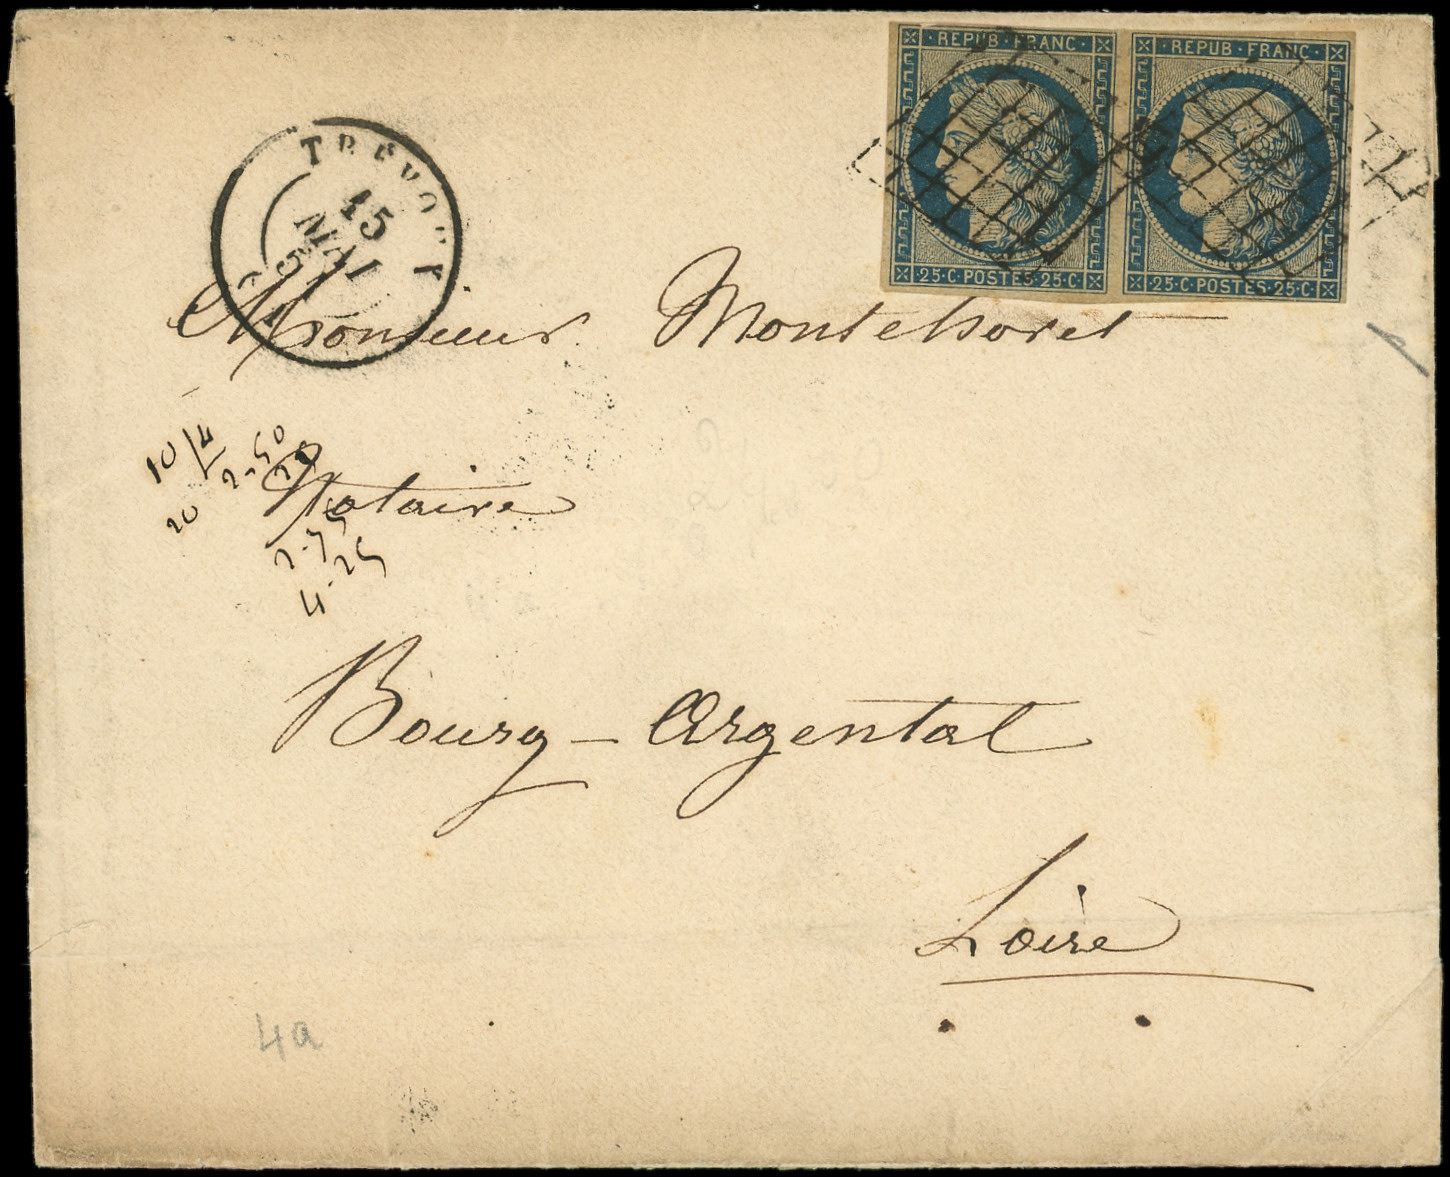 REPUB · FRANC · REPUB · FRANC ·
25 · C POSTES · 25 · C 25 · C POSTES · 25 · C
TRÉVOUX
15
MAI
51
Monsieur Montchovet
10 4
20 2-50
Notaire
4-25
Bourg-Argental
Loire
4a